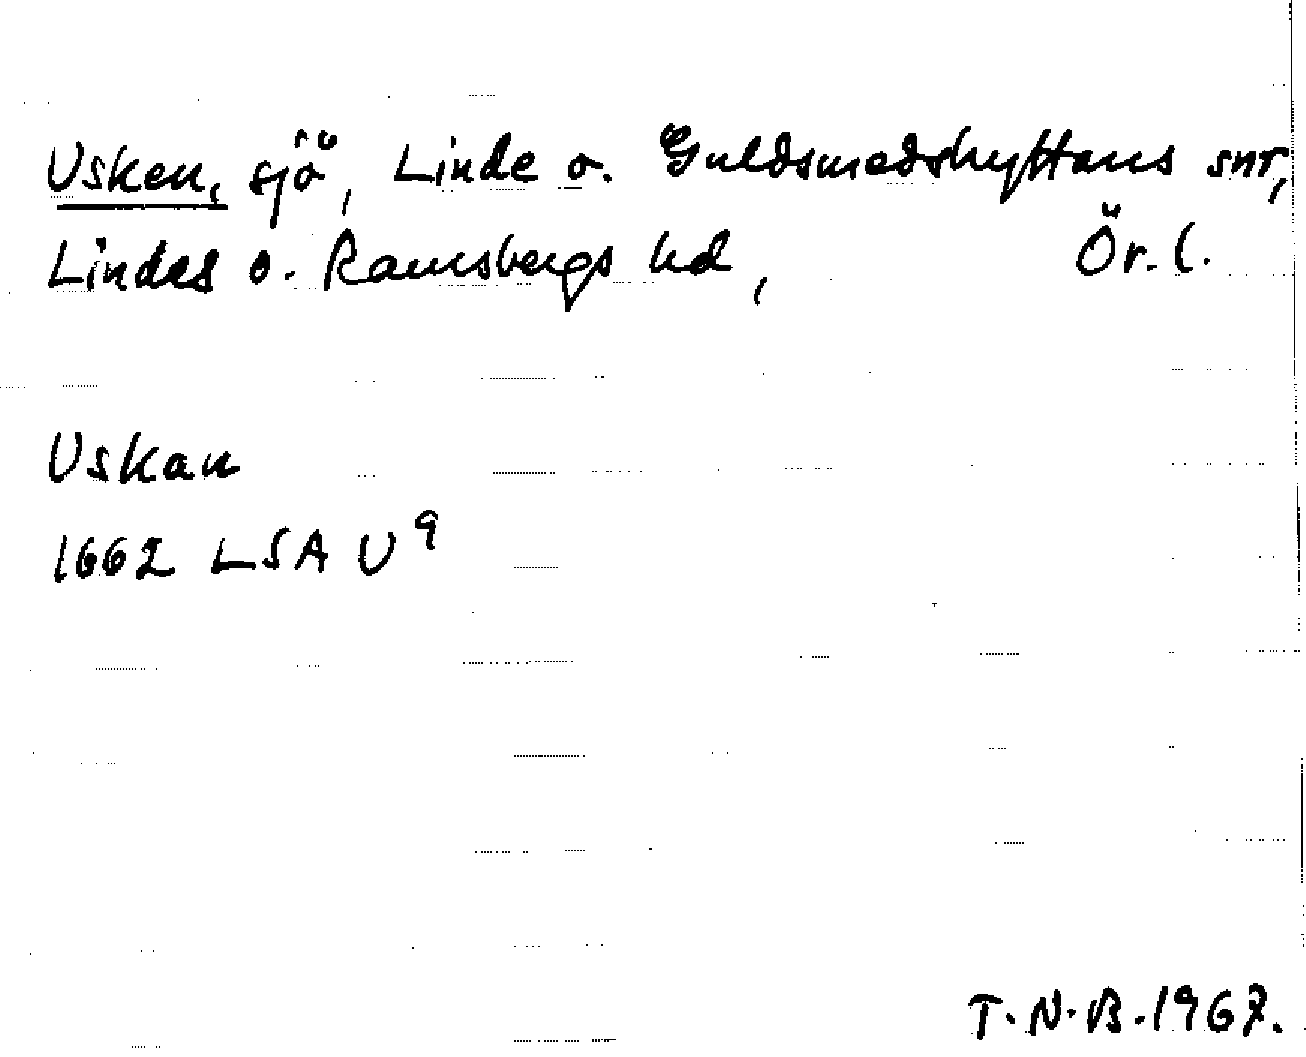 Usken, sjö, Linde o. Guldsmedshyttans snr,
Lindes o. Ramsbergs hd, Ör. l.
Uskan
1662 LSA U 9
T.N.B. 1967.